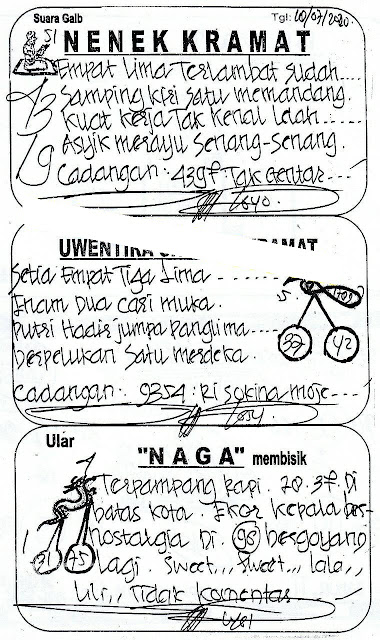 Suara Gaib
Tgl: 10/07/2020.
51
NENEK KRAMAT
Empat Lima Terlambat sudah....
Samping kiri satu memandang.
Kuat kerja Tak kenal Lelah....
Asyik merayu senang-senang.
Cadangan: 4391: Tak Gentar....
1640.
UWENTIRA KRAMAT
Setia Empat Tiga Lima ....
Enam Dua cari muka.
Putri Hadir jumpa panglima....
berpelukan satu merdeka.
5
37
42
Cadangan: 9354:
Ular
"NAGA" membisik
Terpampang rapi. 20.37. Di
batas kota. Ekor kepala ber-
nostalgia Di. 95 bergoyang
Lagi. Sweet,,, Sweet,,, lala,,
Lili,, Tidak komentas
31
75